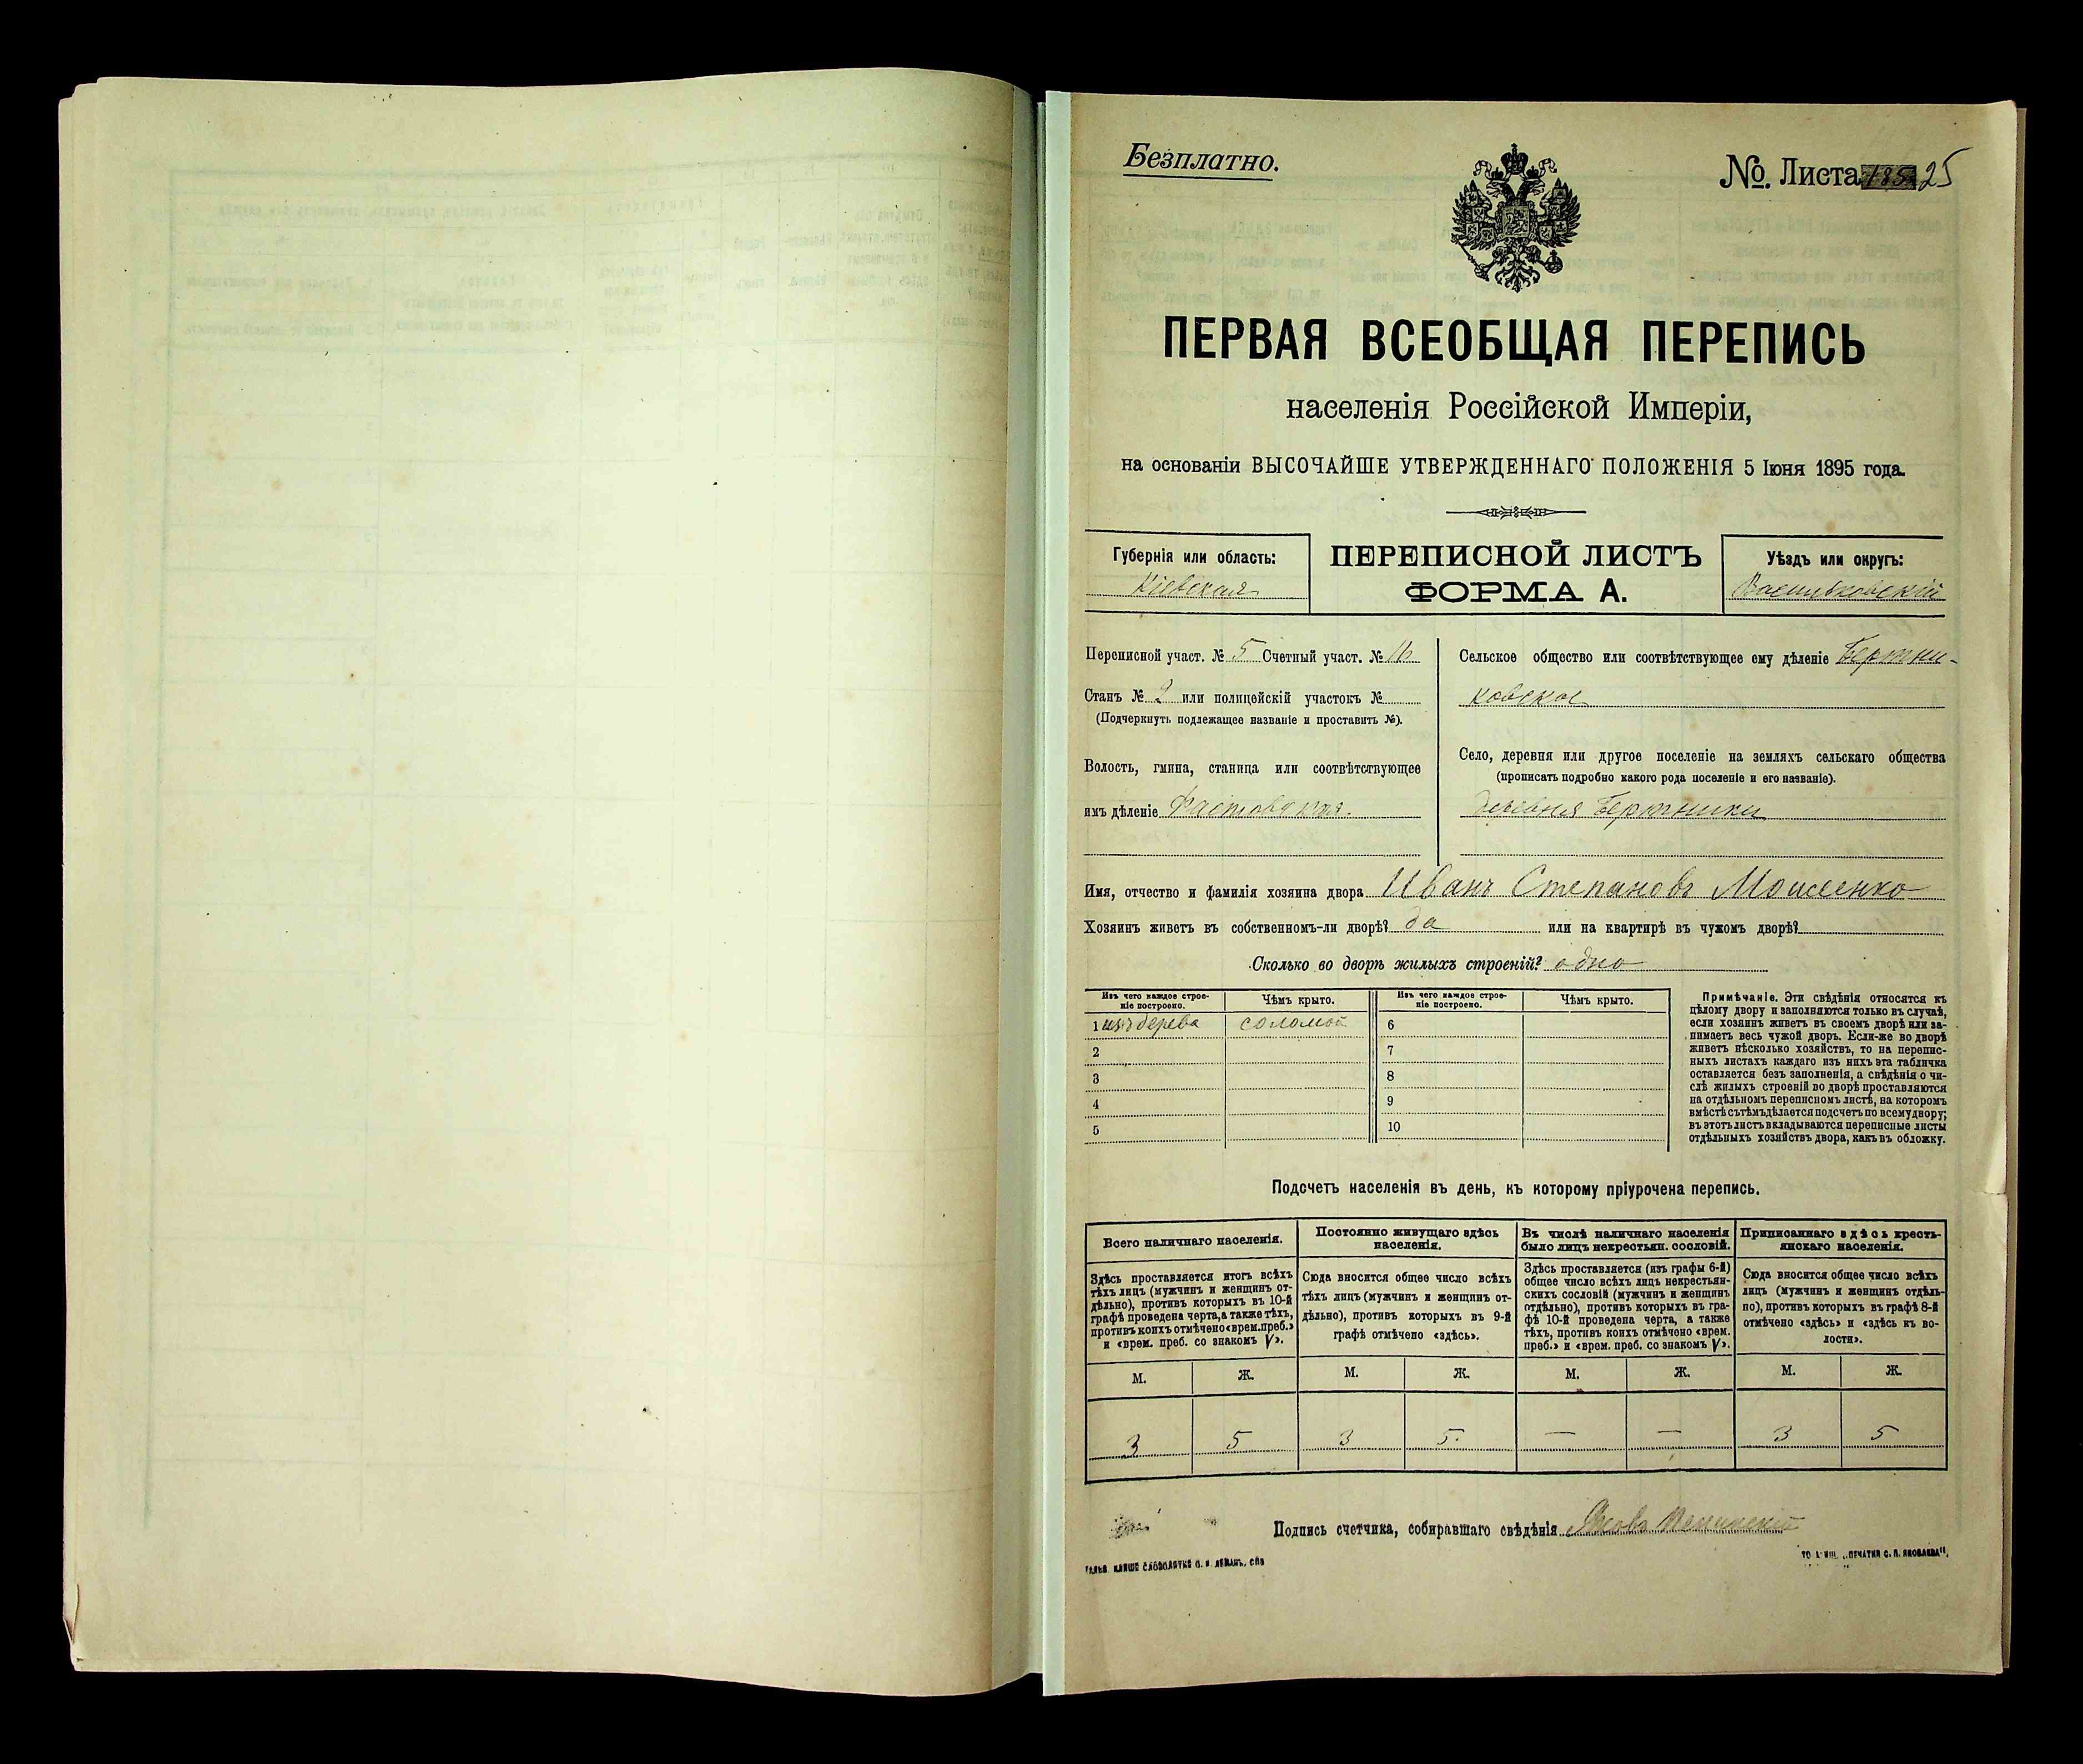 Безплатно.
№. Листа 25
ПЕРВАЯ ВСЕОБЩАЯ ПЕРЕПИСЬ
населенія Россійской Имперіи,
на основаніи ВЫСОЧАЙШЕ УТВЕРЖДЕННАГО ПОЛОЖЕНІЯ 5 Іюня 1895 года.
Губернія или область:
Кіевская
ПЕРЕПИСНОЙ ЛИСТЪ
ФОРМА А.
Уѣздъ или округъ:
Васильковскій
Переписной участ. № 5 Счетный участ. №
Станъ № 2 или полицейскій участокъ №
(Подчеркнуть подлежащее названіе и проставить №).
Волость, гмина, станица или соотвѣтствующее
имъ дѣленіе Фастовская.
Сельское общество или соотвѣтствующее ему дѣленіе Бертни-
ковское
Село, деревня или другое поселеніе на земляхъ сельскаго общества
(прописать подробно какого рода поселеніе и его названіе).
деревня Бертники
Имя, отчество и фамилія хозяина двора Иванъ Степановъ Моисеенко
Хозяинъ живетъ въ собственномъ-ли дворѣ? да или на квартирѣ въ чужомъ дворѣ?
Сколько во дворѣ жилыхъ строеній? одно
Изъ чего каждое строе-
ніе построено.
Чѣмъ крыто.
Изъ чего каждое строе-
ніе построено.
Чѣмъ крыто.
1 изъ дерева соломой 6
2 7
3 8
4 9
5 10
Примѣчаніе. Эти свѣдѣнія относятся къ
цѣлому двору и заполняются только въ случаѣ,
если хозяинъ живетъ въ своемъ дворѣ или за-
нимаетъ весь чужой дворъ. Если-же во дворѣ
живетъ нѣсколько хозяйствъ, то на перепис-
ныхъ листахъ каждаго изъ нихъ эта табличка
оставляется безъ заполненія, а свѣдѣнія о чи-
слѣ жилыхъ строеній во дворѣ проставляются
на отдѣльномъ переписномъ листѣ, на которомъ
вмѣстѣ съ тѣмъ дѣлается подсчетъ по всему двору;
въ этотъ листъ вкладываются переписные листы
отдѣльныхъ хозяйствъ двора, какъ въ обложку.
Подсчетъ населенія въ день, къ которому пріурочена перепись.
Всего наличнаго населенія.
Здѣсь проставляется итогъ всѣхъ
тѣхъ лицъ (мужчинъ и женщинъ от-
дѣльно), противъ которыхъ въ 10-й
графѣ проведена черта, а также тѣхъ,
противъ коихъ отмѣчено «врем. преб.»
и «врем. преб. со знакомъ V».
Постоянно живущаго здѣсь
населенія.
Сюда вносится общее число всѣхъ
тѣхъ лицъ (мужчинъ и женщинъ от-
дѣльно), противъ которыхъ въ 9-й
графѣ отмѣчено «здѣсь».
Въ числѣ наличнаго населенія
было лицъ некрестьян. сословій.
Здѣсь проставляется (изъ графы 6-й)
общее число всѣхъ лицъ некрестьян-
скихъ сословій (мужчинъ и женщинъ
отдѣльно), противъ которыхъ въ гра-
фѣ 10-й проведена черта, а также
тѣхъ, противъ коихъ отмѣчено «врем.
преб.» и «врем. преб. со знакомъ V».
Приписаннаго здѣсь кресть-
янскаго населенія.
Сюда вносится общее число всѣхъ
лицъ (мужчинъ и женщинъ отдѣль-
но), противъ которыхъ въ графѣ 8-й
отмѣчено «здѣсь» и «здѣсь къ во-
лости».
М. Ж. М. Ж. М. Ж. М. Ж.
3 5 3 5. — — 3 5
Подпись счетчика, собиравшаго свѣдѣнія